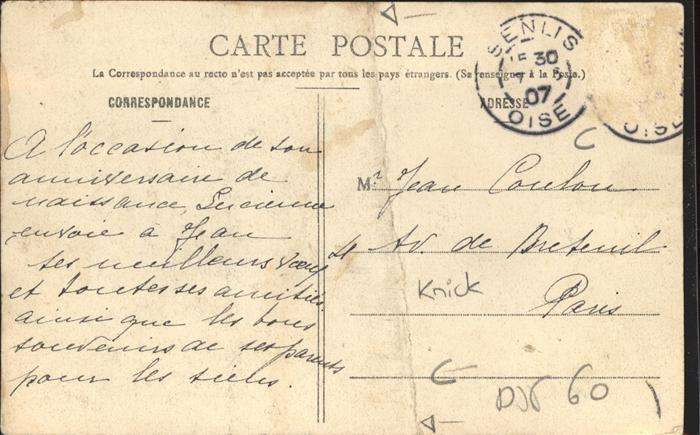 CARTE POSTALE
La Correspondance au recto n'est pas acceptée par tous les pays étrangers. (Se renseigner à la Poste.)
CORRESPONDANCE
A l'occasion de son
anniversaire de
naissance Lucienne
envoie à Jean
ses meilleurs vœux
et toutes ses amitiés
ainsi que les bons
souvenirs de ses parents
pour les siens.
ADRESSE
SENLIS
30
07
OISE
OISE
Mr Jean Coulon
Av. de Breteuil
Paris
Knick
60